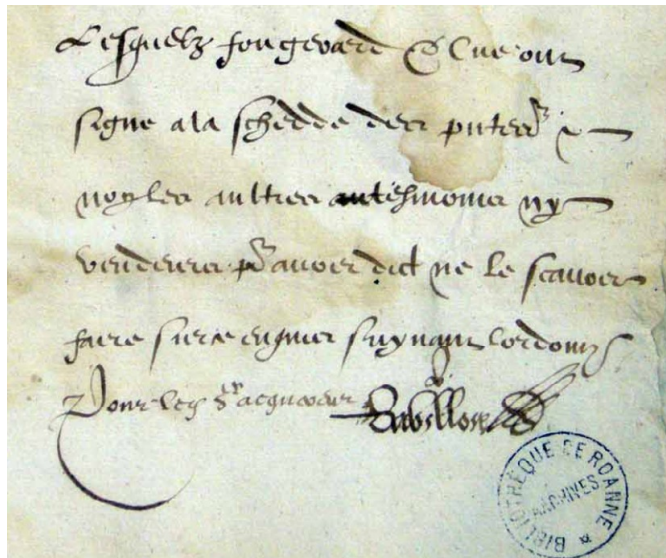 Lesquelz Fougerard & Clue ont
signe a la schedde des pntes &
non les aultres tesmoings ny
venderes pr avoir dict ne le scavoir
faire sur ce enquis suyvant lordonn
Pour led sr acquereur
BIBLIOTHÈQUE DE ROANNE
ARCHIVES